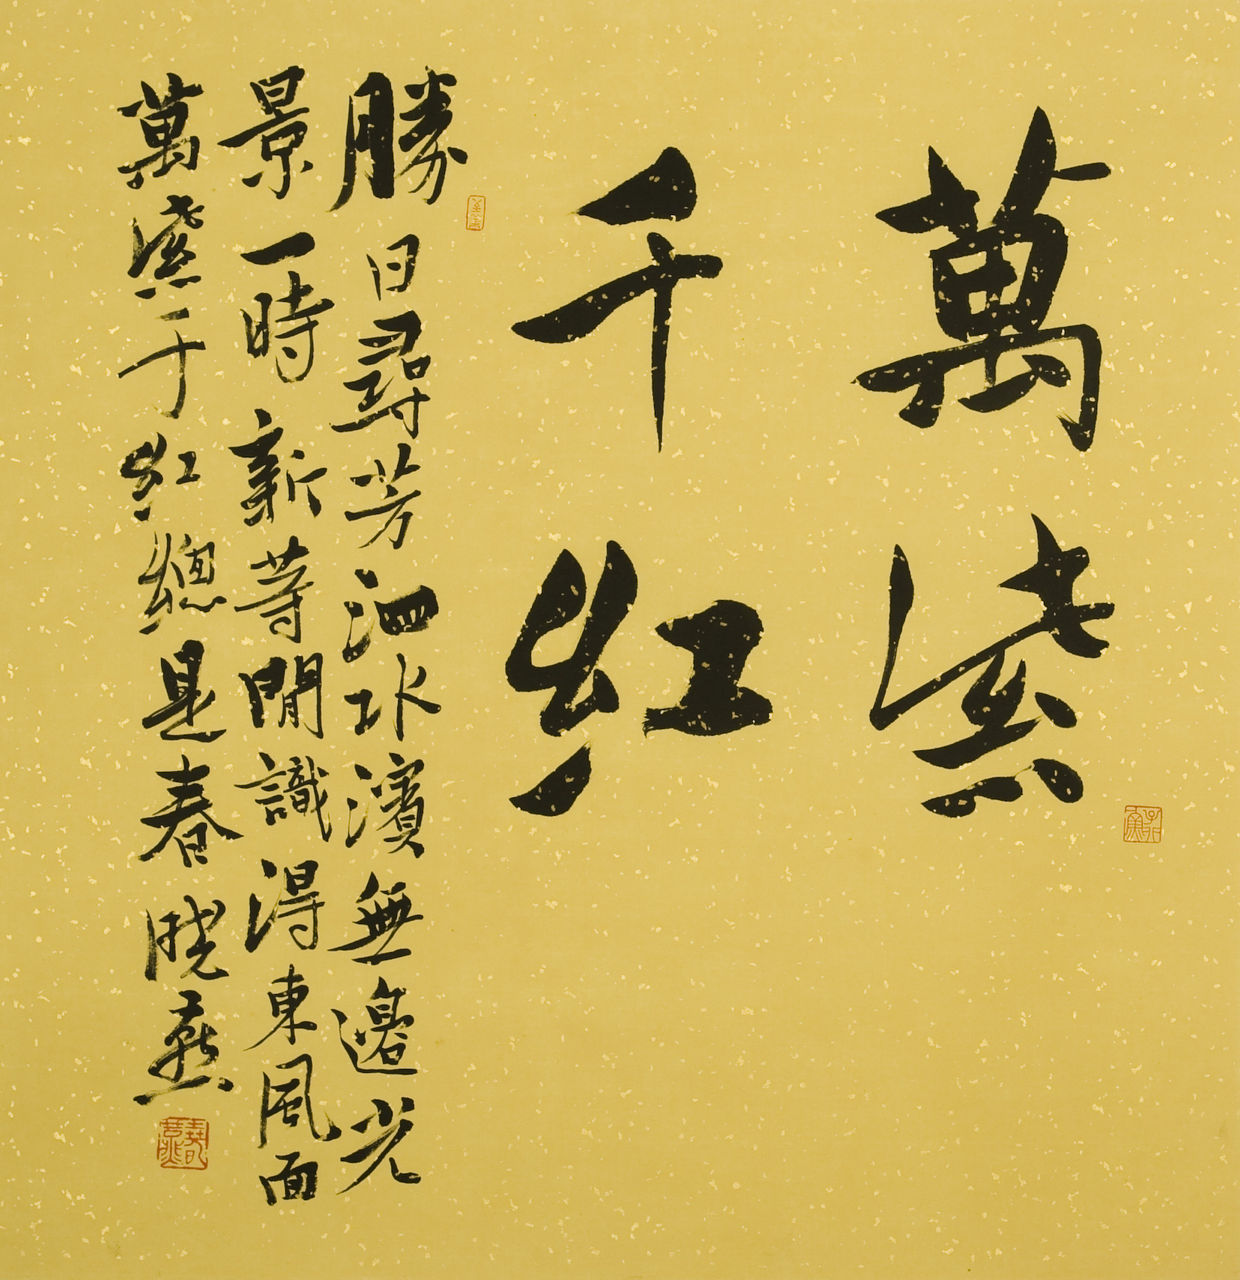 萬紫
千紅
勝日尋芳泗水濱無邊光
景一時新等閒識得東風面
萬紫千紅總是春 曉燕